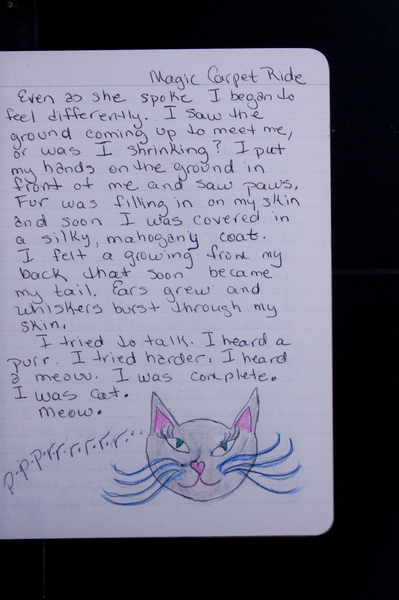 Magic Carpet Ride
Even as she spoke I began to
feel differently. I saw the
ground coming up to meet me,
or was I shrinking? I put
my hands on the ground in
front of me and saw paws.
Fur was filling in on my skin
and soon I was covered in
a silky, mahogany coat.
I felt a growing from my
back that soon became
my tail. Ears grew and
whiskers burst through my
skin.
I tried to talk. I heard a
purr. I tried harder. I heard
a meow. I was complete.
I was cat.
Meow.
p.p.p.r.r.r.r.r.r...